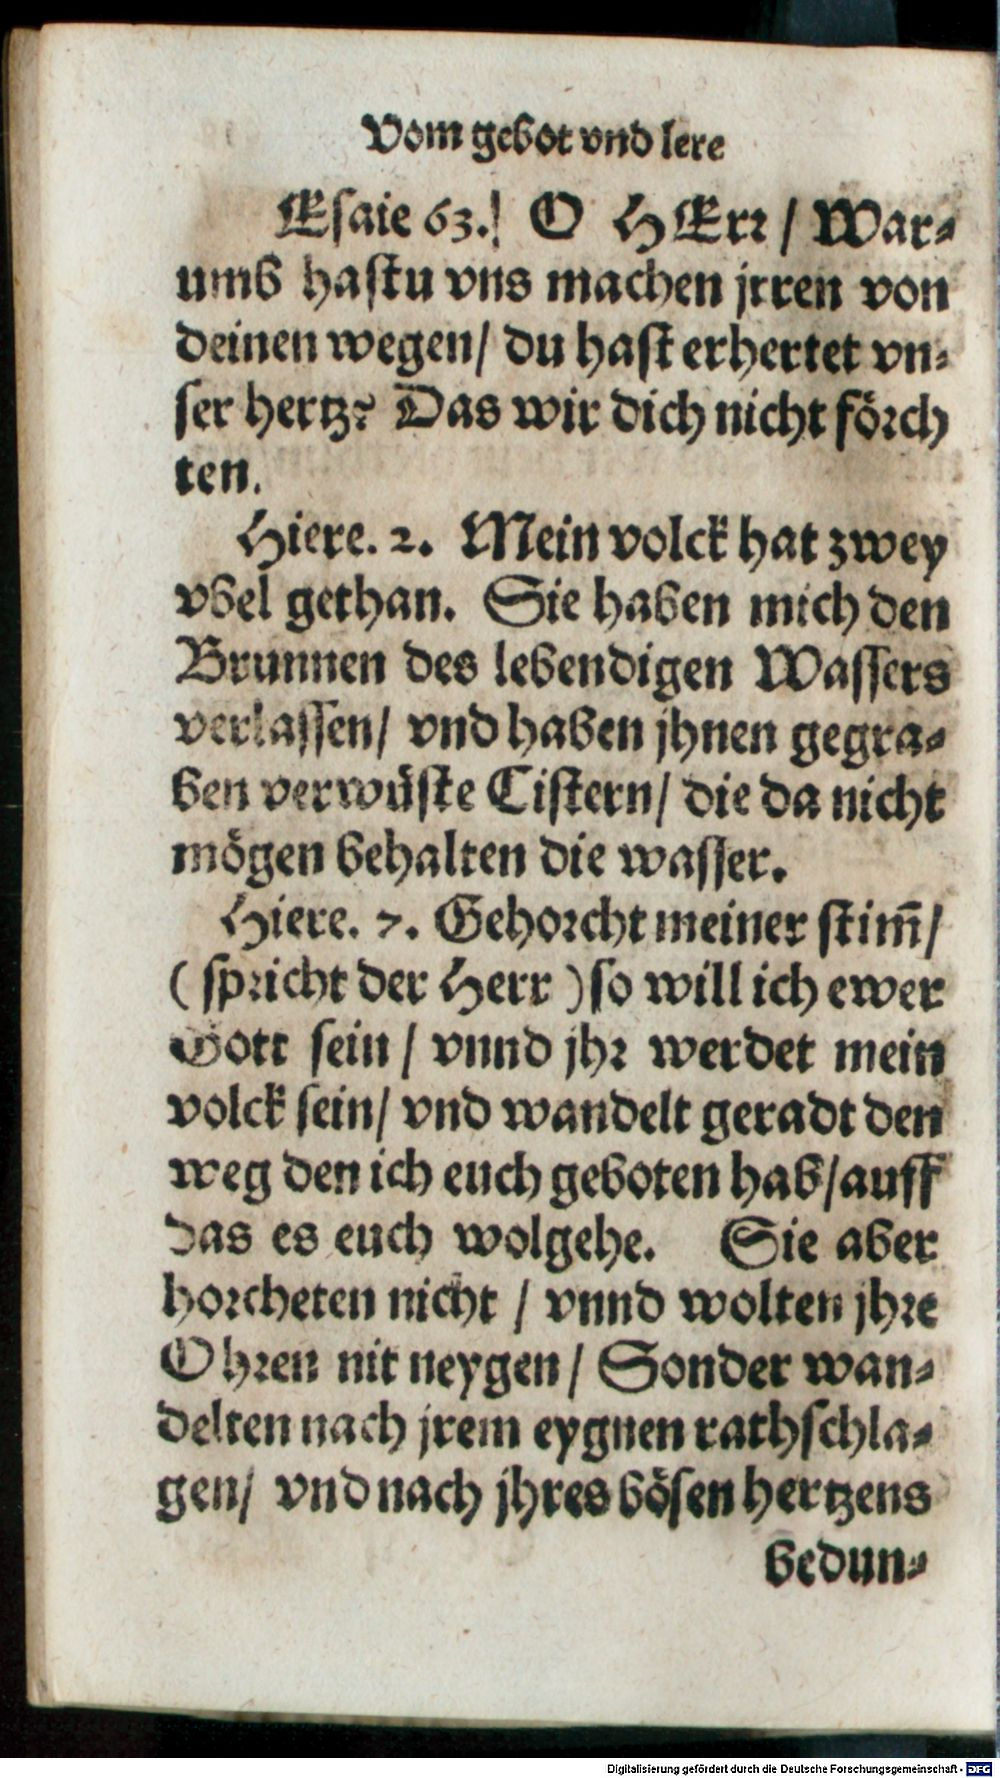 Vom gebot vnd lere
Esaie 63.! O HErr / War⸗
umb hastu vns machen jrren von
deinen wegen / du hast erhertet vn⸗
ser hertz? Das wir dich nicht förch
ten.
Hiere. 2. Mein volck hat zwey
vbel gethan. Sie haben mich den
Brunnen des lebendigen Wassers
verlassen / vnd haben jhnen gegra⸗
ben verwüste Cistern / die da nicht
mögen behalten die wasser.
Hiere. 7. Gehorcht meiner stim̃ /
( spricht der Herr ) so will ich ewer
Gott sein / vnnd jhr werdet mein
volck sein / vnd wandelt geradt den
weg den ich euch geboten hab / auff
das es euch wolgehe. Sie aber
horcheten nicht / vnnd wolten jhre
Ohren nit neygen / Sonder wan⸗
delten nach jrem eygnen rathschla⸗
gen / vnd nach jhres bösen hertzens
bedun⸗
Digitalisierung gefördert durch die Deutsche Forschungsgemeinschaft - DFG